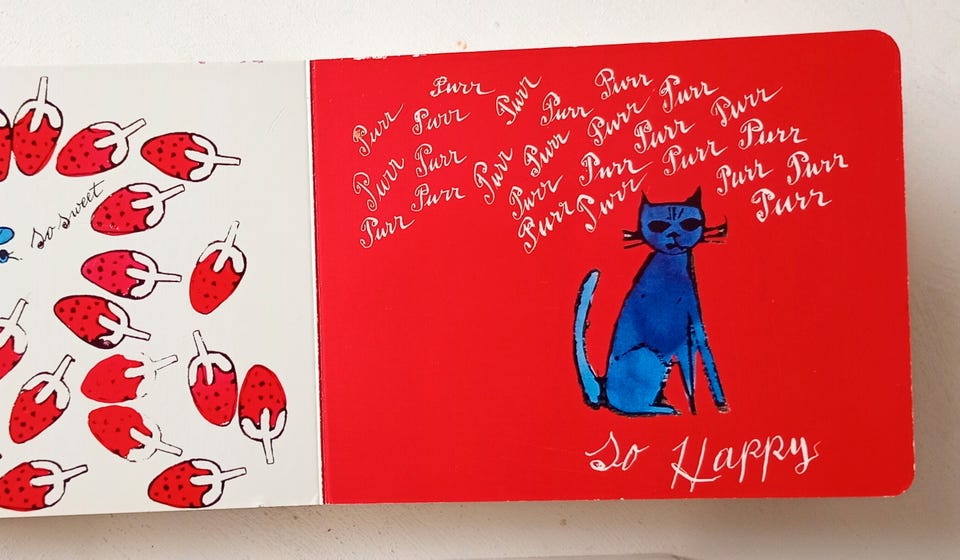 so sweet
Purr Purr Purr
Purr Purr Purr Purr Purr Purr
Purr Purr Purr Purr Purr Purr
Purr Purr Purr Purr Purr Purr
Purr Purr Purr Purr
So Happy